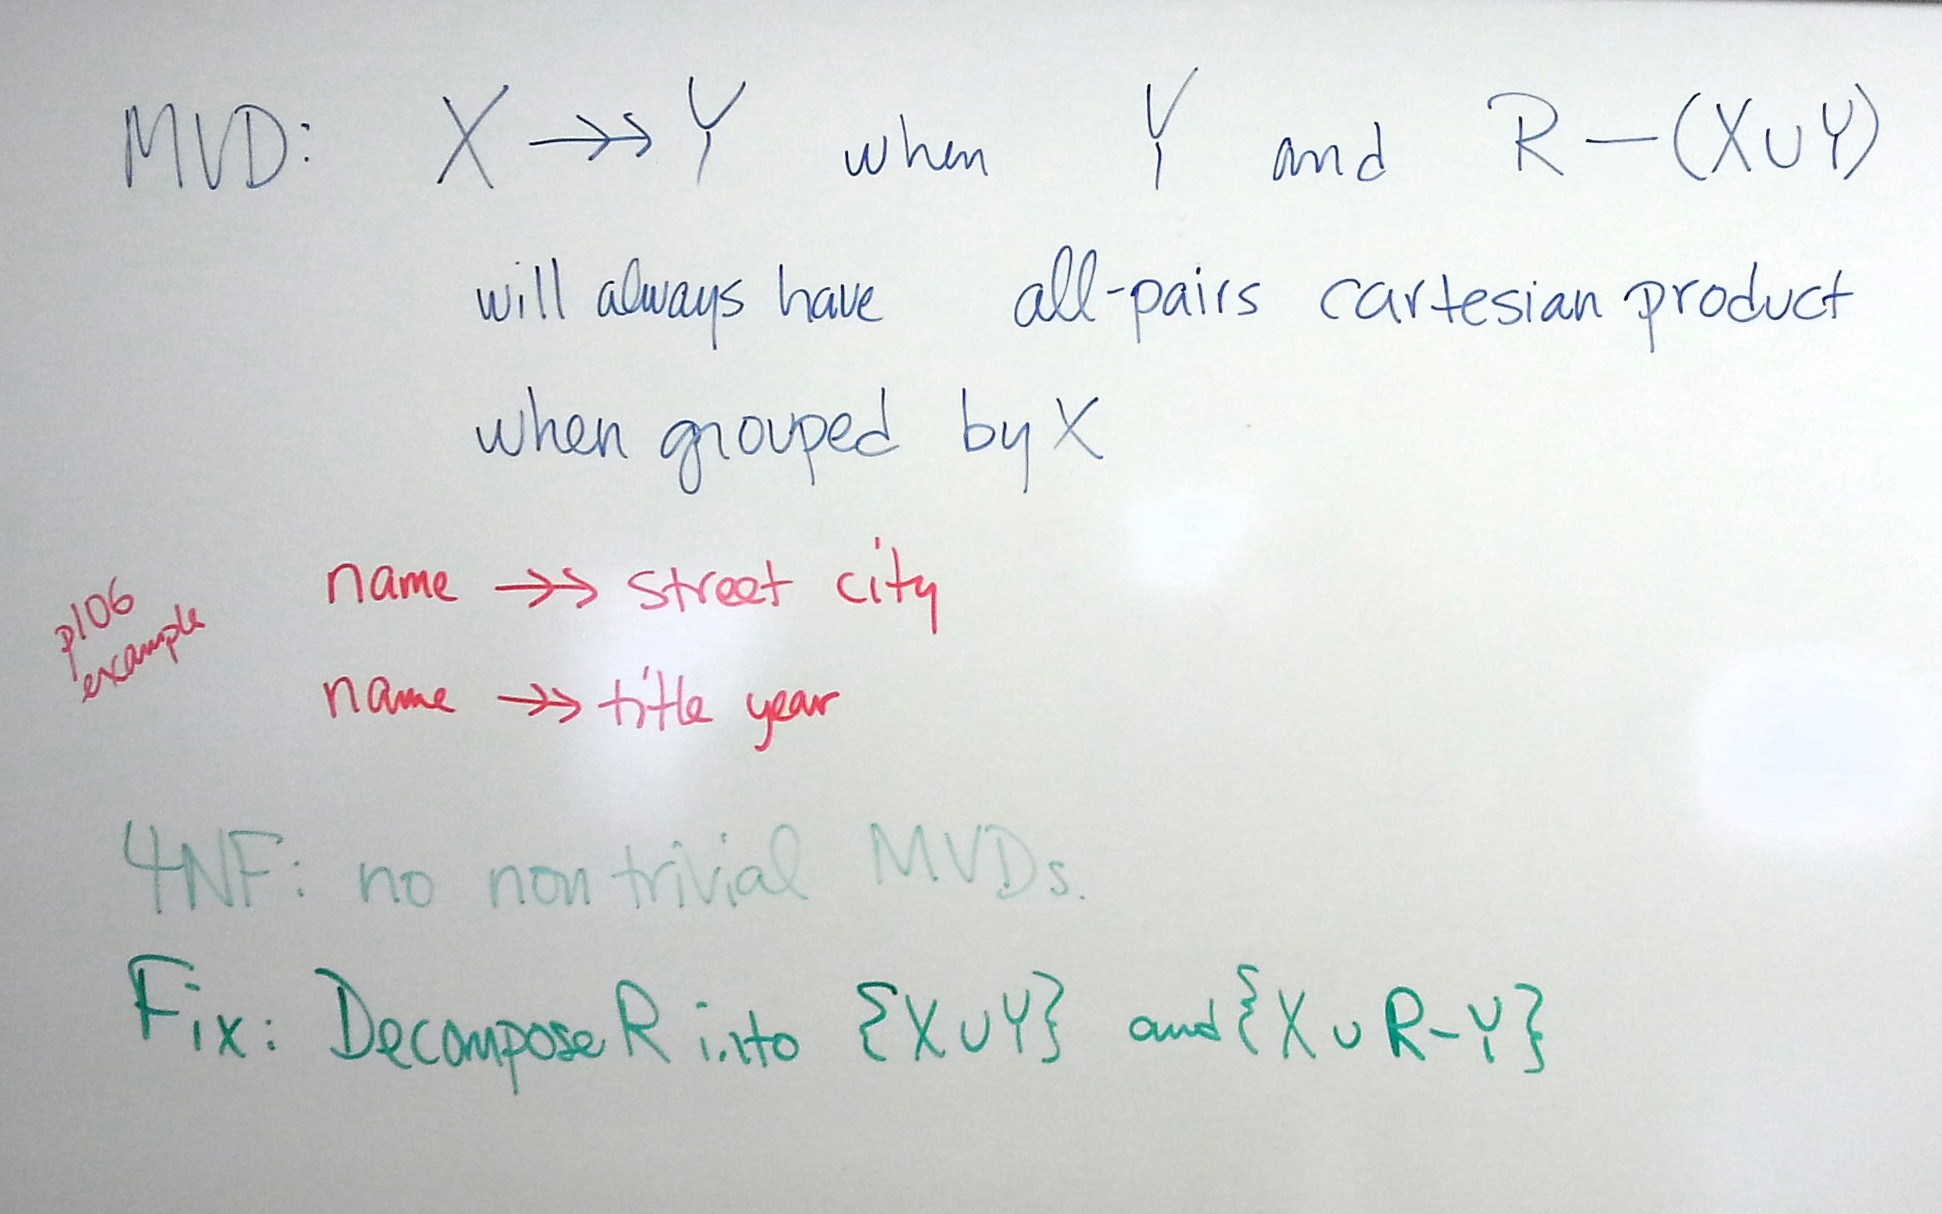 MVD: X ↠ Y when Y and R – (X ∪ Y)
will always have all-pairs cartesian product
when grouped by X
p106
example
name ↠ street city
name ↠ title year
4NF: no nontrivial MVDs.
Fix: Decompose R into {X ∪ Y} and {X ∪ R – Y}